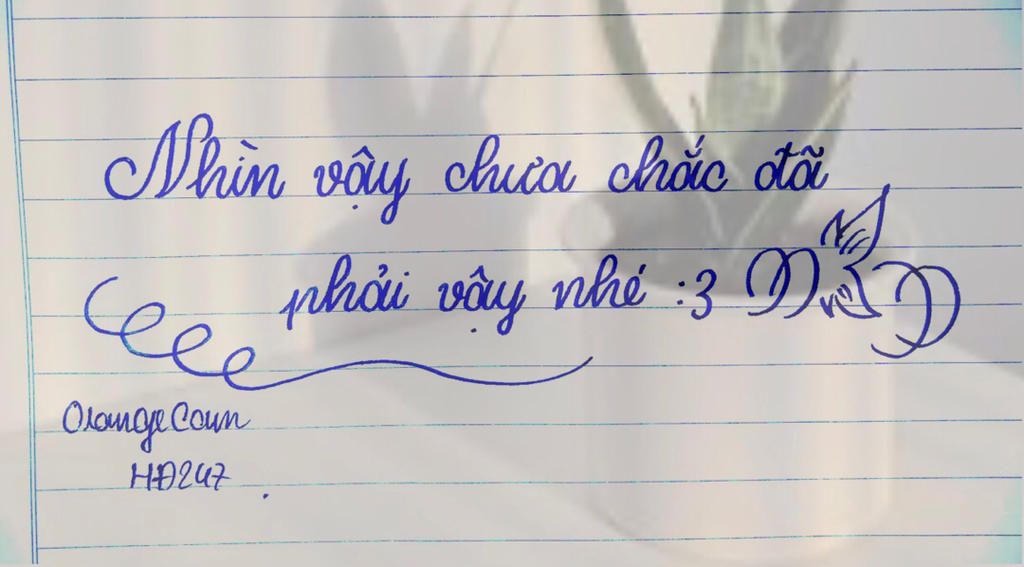 Nhìn vậy chưa chắc đã
phải vậy nhé :3
Orange Cam
HĐ247